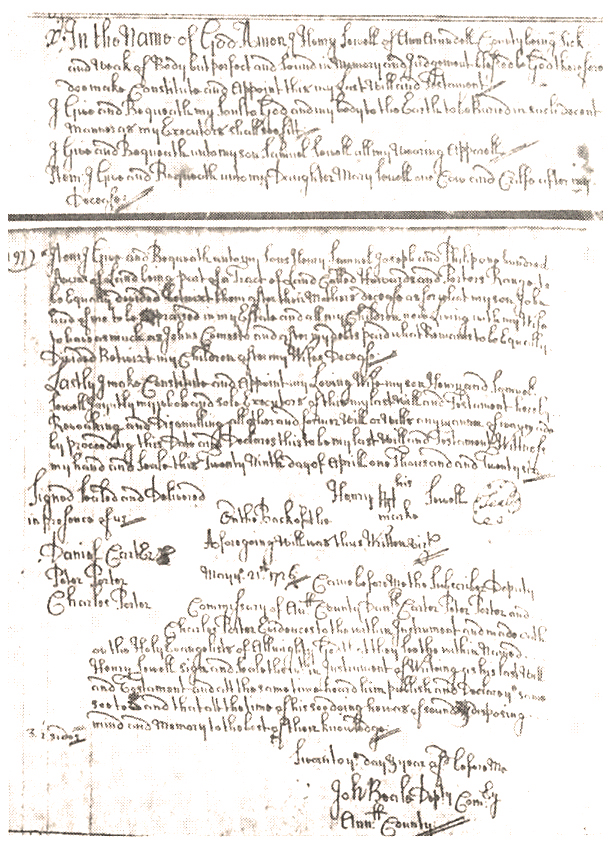 In the Name of God Amen I Henry Sewell of Ann Arundell County being Sick
and Weak of Body but perfect and Sound in Memory and Judgement blessed be God therefore
doe make Constitute and Appoint this my Last Will and Testament
I Give and Bequeath my Soul to God and my body to the Earth to be buried in Such Decent
Manner as my Executors Shall See fitt
I Give and Bequeath unto my son Samuel Sewell all my Wearing Apparell
Item I Give and Bequeath unto my Daughter Mary Sewell one Cow and Calfe after my
Decease
197
Item I Give and Bequeath unto my Sons Henry Samuel Joseph and Philip one hundred
Acres of Land being part of a Tract of Land Called Howards and Porters Range to
be Equally divided betwixt them after their Mothers decease as for what my son John
had of me to be in my Estate and all my Children now Living with my Wife
to have as much as Johns Comes to and after my debts paid what Remains to be Equally
Divided Betwixt my Children after my Wifes Decease
Lastly I make Constitute and Appoint my Loving Wife my son Henry and Samuel
Sewell Joyntly my whole and sole Executors of this my Last Will and Testament hereby
Revoking and Disanulling all other and former Will or Wills any manner of ways
by proceeding this Date and Declares this to be my Last Will and Testament Witness
my hand and Seale this Twenty Ninth day of Aprill one Thousand and Twenty six
Signed Sealed and Delivered
in presence of us
Daniel Carter
Peter Porter
Charles Porter
Henry his mark Sewell Seale
On the Back of the
Aforegoing Will was thus Written viz
May ye 21st 1726 Came before me the Subscriber Deputy
Commissary of Ann County Carter Peter Porter and
Charles Porter Evidences to the within Instrument and made oath
on the Holy Evangelists of Almighty God that they see the within Named
Henry Sewell sign and Seale the within Instrument of Writing as his Last Will
and Testament and att the same time heard him publish and Declare ye same
soe to be and that att the time of his soe doing he was of sound disposing
mind and Memory to the best of their knowledge
3: sides
Sworn to ye day & year afsd before me
John Beale Depty Comry
County